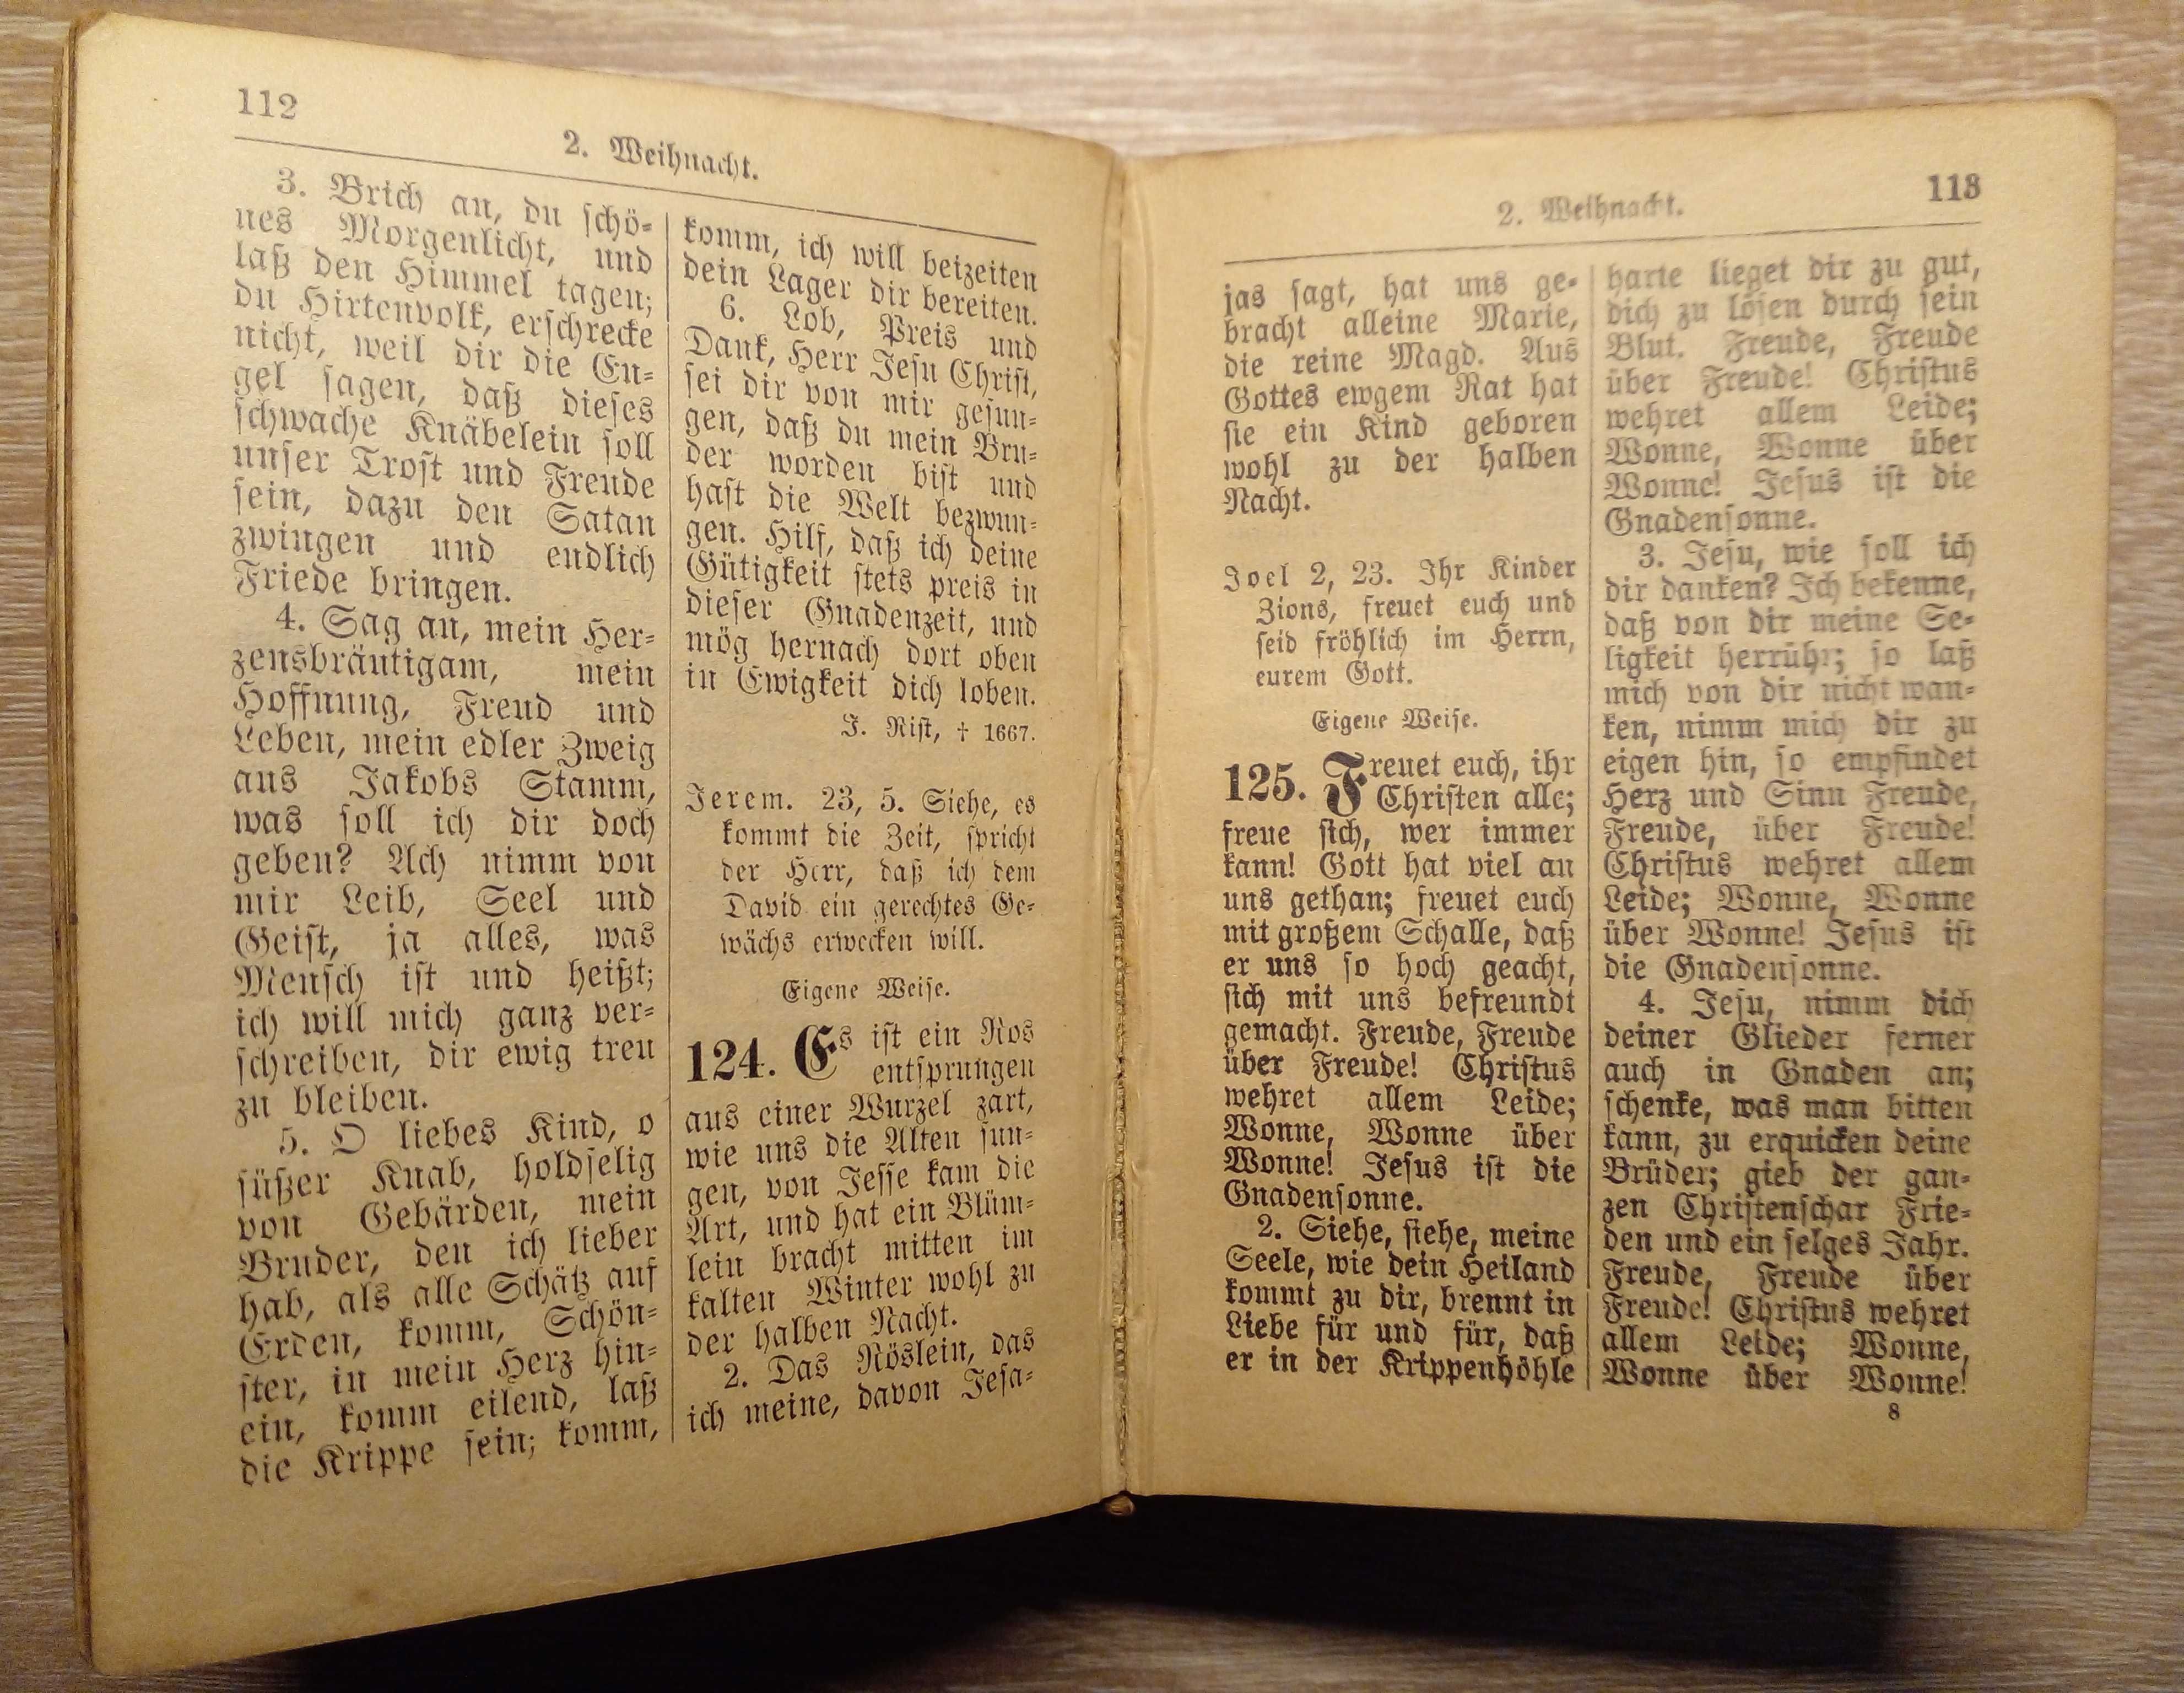 112
2. Weihnacht.
3. Brich an, du schö-
nes Morgenlicht, und
laß den Himmel tagen;
du Hirtenvolk, erschrecke
nicht, weil dir die En-
gel sagen, daß dieses
schwache Knäbelein soll
unser Trost und Freude
sein, dazu den Satan
zwingen und endlich
Friede bringen.
4. Sag an, mein Her-
zensbräutigam, mein
Hoffnung, Freud und
Leben, mein edler Zweig
aus Jakobs Stamm,
was soll ich dir doch
geben? Ach nimm von
mir Leib, Seel und
Geist, ja alles, was
Mensch ist und heißt;
ich will mich ganz ver-
schreiben, dir ewig treu
zu bleiben.
5. O liebes Kind, o
süßer Knab, holdselig
von Gebärden, mein
Bruder, den ich lieber
hab, als alle Schätz auf
Erden, komm, Schön-
ster, in mein Herz hin-
ein, komm eilend, laß
die Krippe sein; komm,
komm, ich will beizeiten
dein Lager dir bereiten.
6. Lob, Preis und
Dank, Herr Jesu Christ,
sei dir von mir gesun-
gen, daß du mein Bru-
der worden bist und
hast die Welt bezwun-
gen. Hilf, daß ich deine
Gütigkeit stets preis in
dieser Gnadenzeit, und
mög hernach dort oben
in Ewigkeit dich loben.
J. Rist, † 1667.
Jerem. 23, 5. Siehe, es
kommt die Zeit, spricht
der Herr, daß ich dem
David ein gerechtes Ge-
wächs erwecken will.
Eigene Weise.
124. Es ist ein Ros
entsprungen
aus einer Wurzel zart,
wie uns die Alten sun-
gen, von Jesse kam die
Art, und hat ein Blüm-
lein bracht mitten im
kalten Winter wohl zu
der halben Nacht.
2. Das Röslein, das
ich meine, davon Jesa-
2. Weihnacht.
113
jas sagt, hat uns ge-
bracht alleine Marie,
die reine Magd. Aus
Gottes ewgem Rat hat
sie ein Kind geboren
wohl zu der halben
Nacht.
Joel 2, 23. Ihr Kinder
Zions, freuet euch und
seid fröhlich im Herrn,
eurem Gott.
Eigene Weise.
125. Freuet euch, ihr
Christen alle;
freue sich, wer immer
kann! Gott hat viel an
uns gethan; freuet euch
mit großem Schalle, daß
er uns so hoch geacht,
sich mit uns befreundt
gemacht. Freude, Freude
über Freude! Christus
wehret allem Leide;
Wonne, Wonne über
Wonne! Jesus ist die
Gnadensonne.
2. Siehe, siehe, meine
Seele, wie dein Heiland
kommt zu dir, brennt in
Liebe für und für, daß
er in der Krippenhöhle
harte lieget dir zu gut,
dich zu lösen durch sein
Blut. Freude, Freude
über Freude! Christus
wehret allem Leide;
Wonne, Wonne über
Wonne! Jesus ist die
Gnadensonne.
3. Jesu, wie soll ich
dir danken? Ich bekenne,
daß von dir meine Se-
ligkeit herrühr; so laß
mich von dir nicht wan-
ken, nimm mich dir zu
eigen hin, so empfindet
Herz und Sinn Freude,
Freude, über Freude!
Christus wehret allem
Leide; Wonne, Wonne
über Wonne! Jesus ist
die Gnadensonne.
4. Jesu, nimm dich
deiner Glieder ferner
auch in Gnaden an;
schenke, was man bitten
kann, zu erquicken deine
Brüder; gieb der gan-
zen Christenschar Frie-
den und ein selges Jahr.
Freude, Freude über
Freude! Christus wehret
allem Leide; Wonne,
Wonne über Wonne!
8